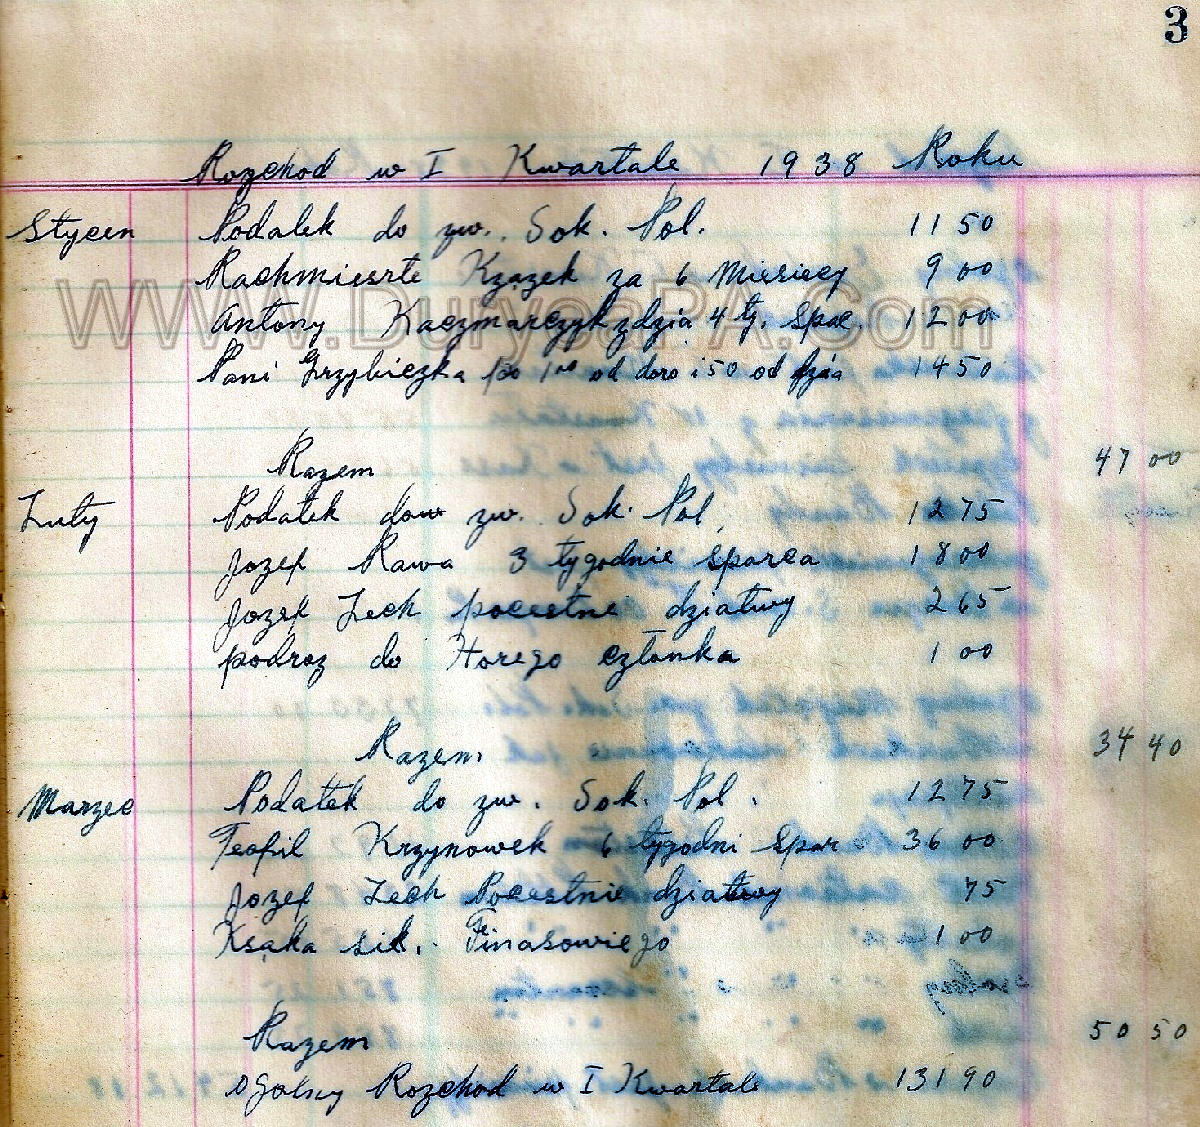 3
Rozchod w I Kwartale 1938 Roku
Styczen Podatek do zw. Sok. Pol. 11 50
Rachmiestrz Książek za 6 Miesiecy 9 00
Antony Kaczmarczyk 4 ty. Spar. 12 00
www.DuryeaPA.Com
Pani Grzybiczka po 1 00 od doro i 50 od 14 50
Razem 47 00
Luty Podatek do zw. Sok. Pol. 12 75
Jozef Rawa 3 tygodnie sparca 18 00
Jozef Lech pocestne dziatwy 2 65
podroz do Horego członka 1 00
Razem 34 40
Marzec Podatek do zw. Sok. Pol. 12 75
Teofil Krzynowek 6 tygodni Spar 36 00
Jozef Lech Pocestnie dziatwy 75
Ksąka Finasowiego 1 00
Razem 50 50
Ogolny Rozchod w I Kwartale 131 90